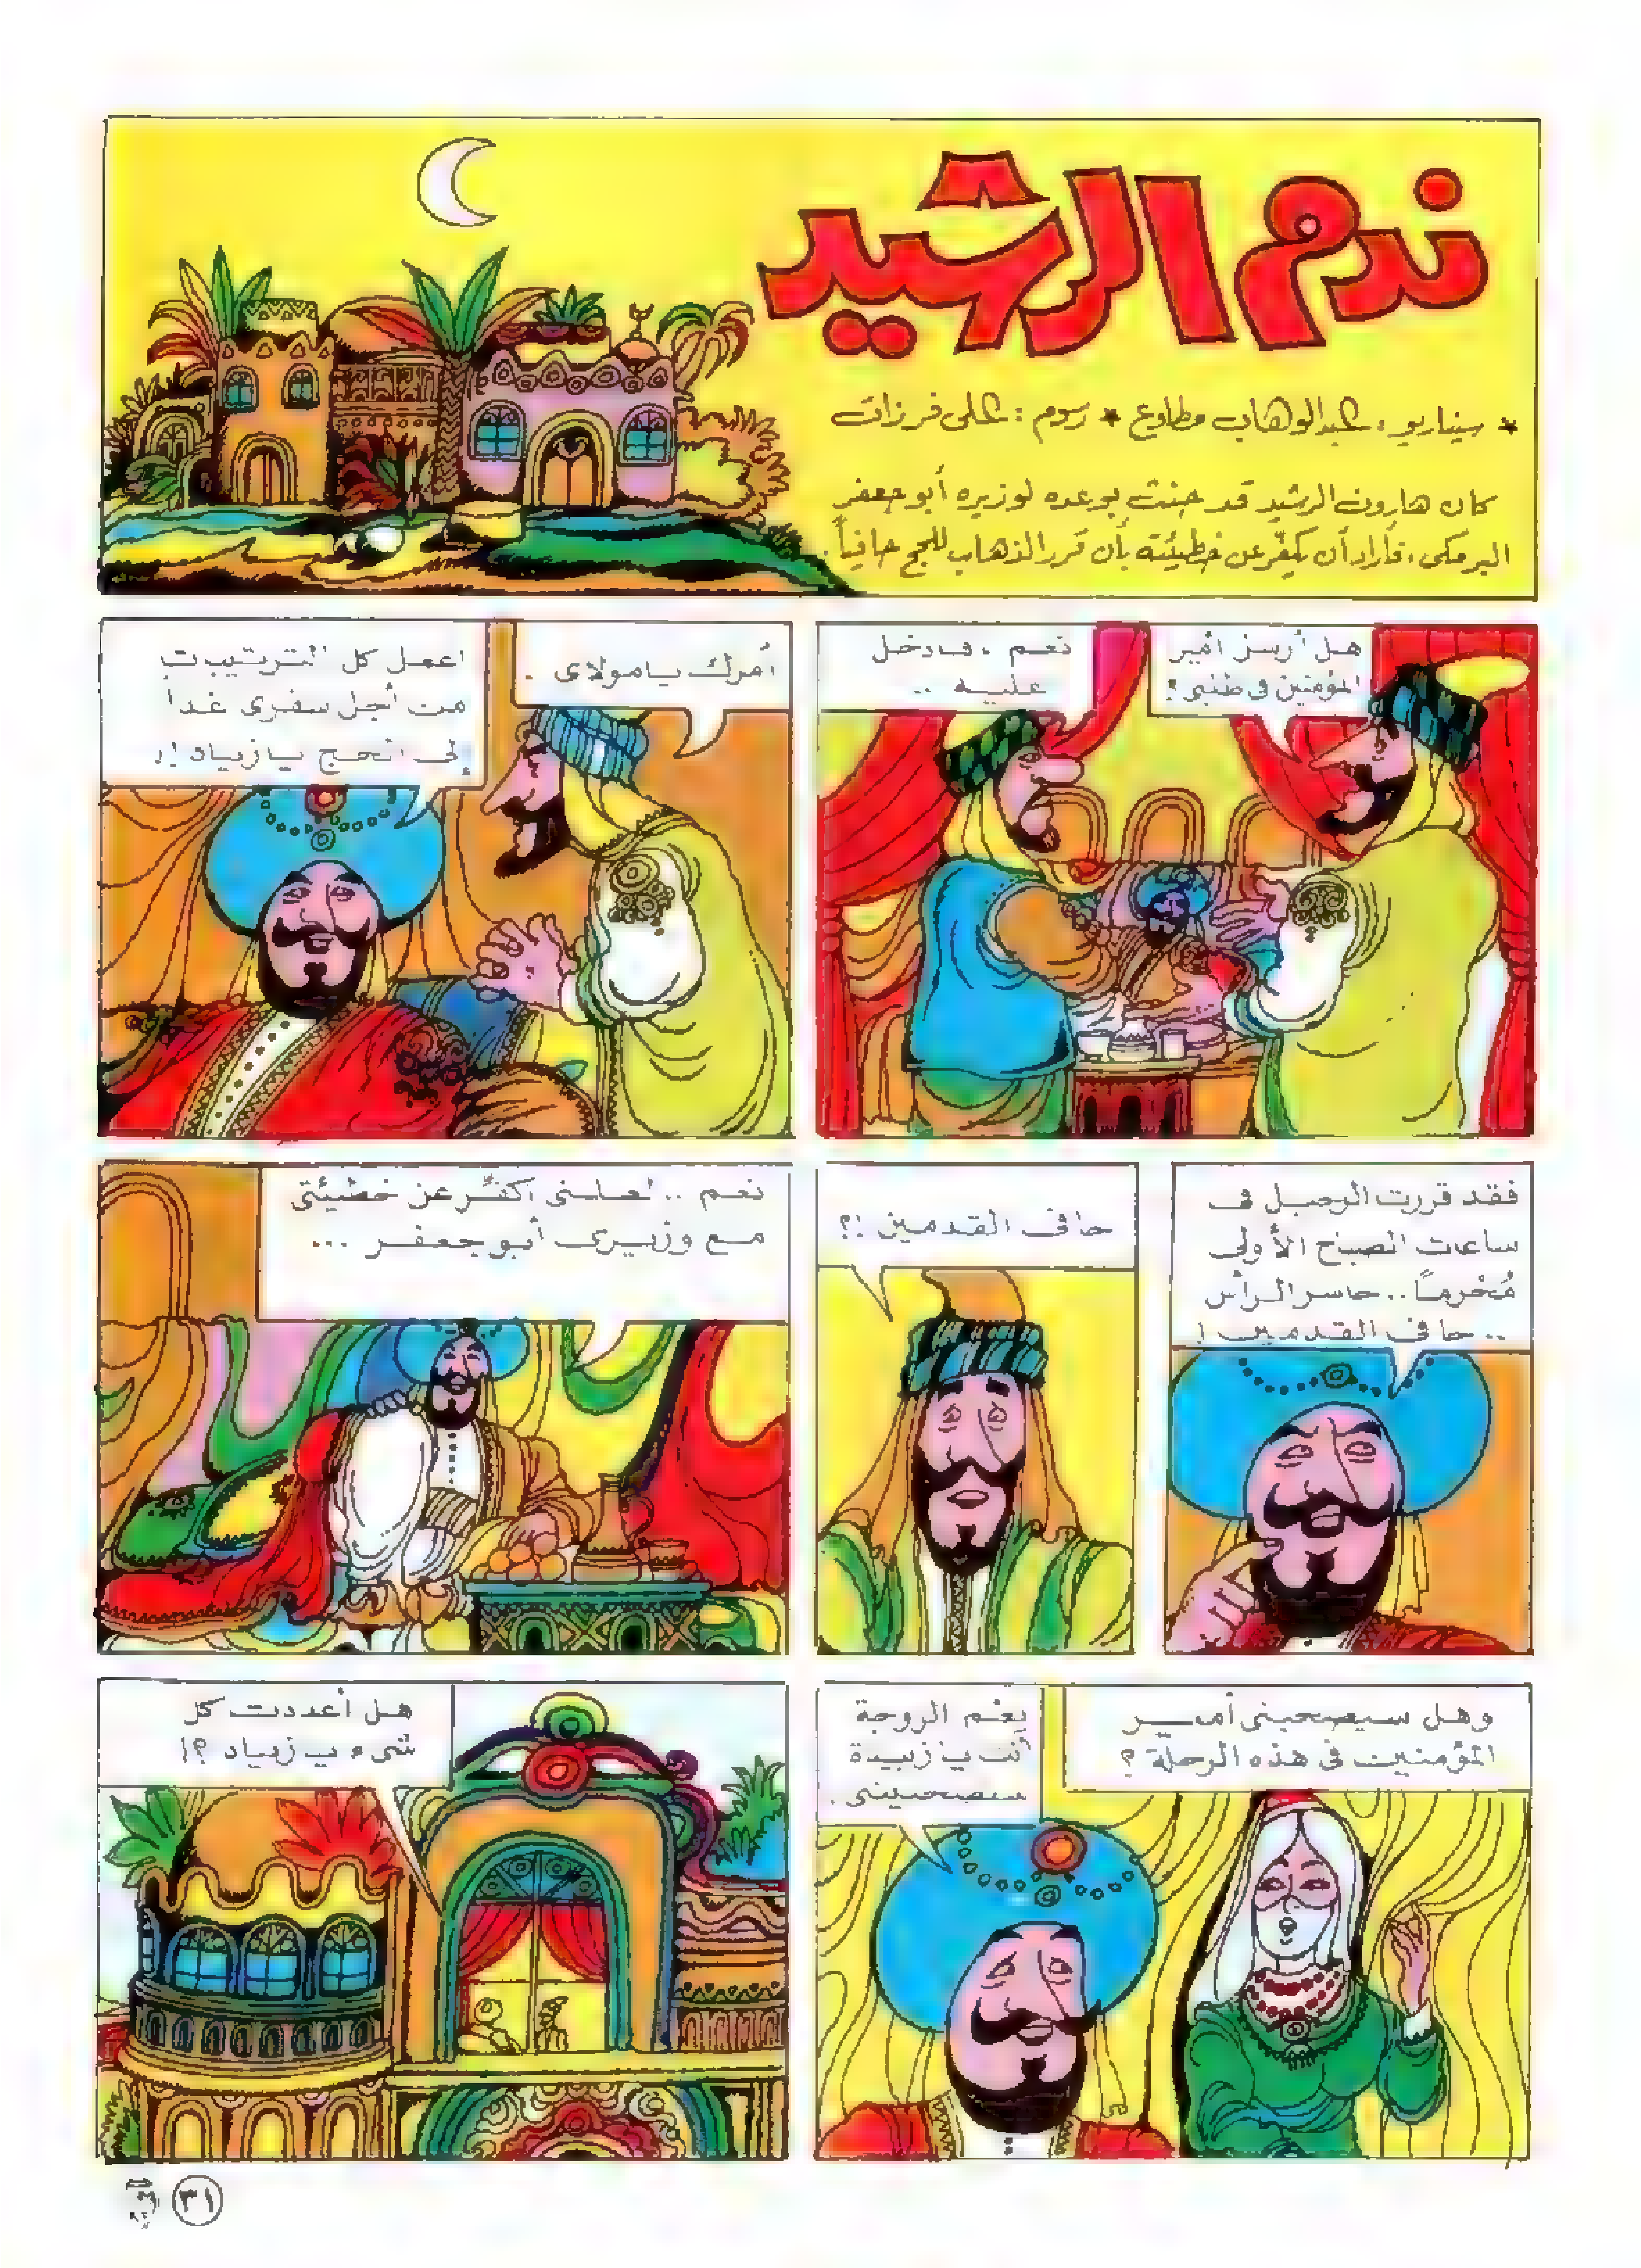 ندم الرشيد
* سيناريو : عبدالوهاب مطاوع * رسوم : على فرزات
كان هارون الرشيد قد حنث بوعده لوزيره أبو جعفر
البرمكى ، فأراد أن يكفّر عن خطيئته بأن قرر الذهاب للحج حافياً .
هل أرسل أمير
المؤمنين فى طلبى ؟
نعم . فادخل
عليه ..
أمرك يا مولاى .
اعمل كل الترتيبات
من أجل سفرى غدا
إلى الحج يا زياد !!
فقد قررت الرحيل فى
ساعات الصباح الأولى
مُحْرماً .. حاسر الرأس
.. حافى القدمين !
حافى القدمين !؟
نعم .. لعلنى أكفّر عن خطيئتى
مع وزيرى أبو جعفر ...
وهل سيصحبنى أمير
المؤمنين فى هذه الرحلة ؟
نِعْم الزوجة
أنت يا زبيدة
ستصحبينى .
هل أعددت كل
شىء يا زياد ؟!
٣١